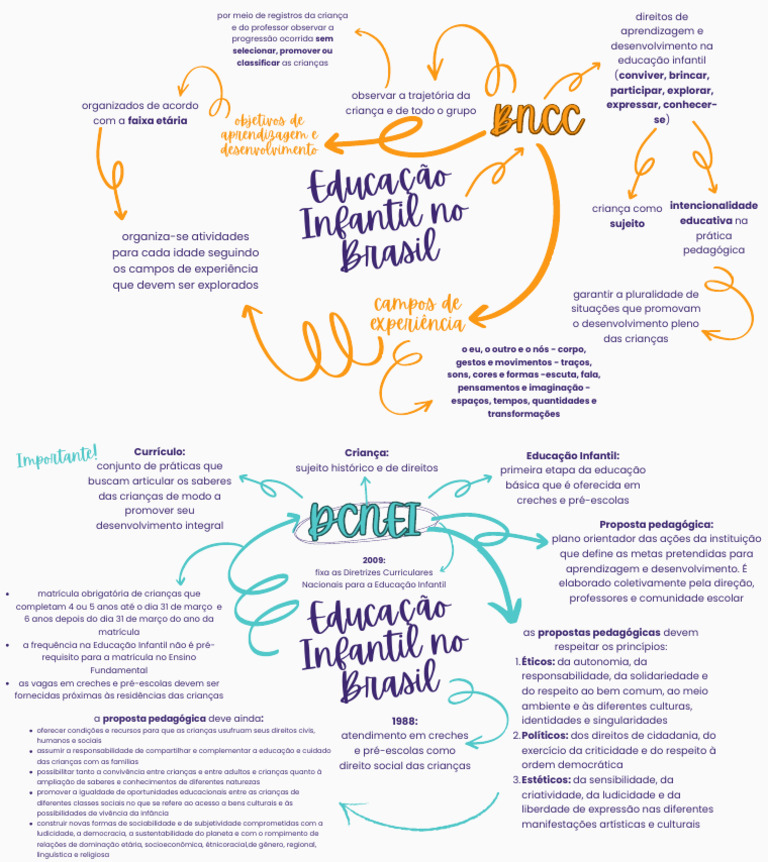 por meio de registros da criança
e do professor observar a
progressão ocorrida sem
selecionar, promover ou
classificar as crianças
direitos de
aprendizagem e
desenvolvimento na
educação infantil
(conviver, brincar,
participar, explorar,
expressar, conhecer-
se)
observar a trajetória da
criança e de todo o grupo
BNCC
organizados de acordo
com a faixa etária
objetivos de
aprendizagem e
desenvolvimento
Educação
Infantil no
Brasil
criança como
sujeito
intencionalidade
educativa na
prática
pedagógica
organiza-se atividades
para cada idade seguindo
os campos de experiência
que devem ser explorados
garantir a pluralidade de
situações que promovam
o desenvolvimento pleno
das crianças
campos de
experiência
o eu, o outro e o nós - corpo,
gestos e movimentos - traços,
sons, cores e formas -escuta, fala,
pensamentos e imaginação -
espaços, tempos, quantidades e
transformações
Importante!
Currículo:
conjunto de práticas que
buscam articular os saberes
das crianças de modo a
promover seu
desenvolvimento integral
Criança:
sujeito histórico e de direitos
Educação Infantil:
primeira etapa da educação
básica que é oferecida em
creches e pré-escolas
DCNEI
Proposta pedagógica:
plano orientador das ações da instituição
que define as metas pretendidas para
aprendizagem e desenvolvimento. É
elaborado coletivamente pela direção,
professores e comunidade escolar
2009:
fixa as Diretrizes Curriculares
Nacionais para a Educação Infantil
• matrícula obrigatória de crianças que
completam 4 ou 5 anos até o dia 31 de março e
6 anos depois do dia 31 de março do ano da
matrícula
• a frequência na Educação Infantil não é pré-
requisito para a matrícula no Ensino
Fundamental
• as vagas em creches e pré-escolas devem ser
fornecidas próximas às residências das crianças
Educação
Infantil no
Brasil
as propostas pedagógicas devem
respeitar os princípios:
1. Éticos: da autonomia, da
responsabilidade, da solidariedade e
do respeito ao bem comum, ao meio
ambiente e às diferentes culturas,
identidades e singularidades
2. Políticos: dos direitos de cidadania, do
exercício da criticidade e do respeito à
ordem democrática
3. Estéticos: da sensibilidade, da
criatividade, da ludicidade e da
liberdade de expressão nas diferentes
manifestações artísticas e culturais
1988:
atendimento em creches
e pré-escolas como
direito social das crianças
a proposta pedagógica deve ainda:
• oferecer condições e recursos para que as crianças usufruam seus direitos civis,
humanos e sociais
• assumir a responsabilidade de compartilhar e complementar a educação e cuidado
das crianças com as famílias
• possibilitar tanto a convivência entre crianças e entre adultos e crianças quanto à
ampliação de saberes e conhecimentos de diferentes naturezas
• promover a igualdade de oportunidades educacionais entre as crianças de
diferentes classes sociais no que se refere ao acesso a bens culturais e às
possibilidades de vivência da infância
• construir novas formas de sociabilidade e de subjetividade comprometidas com a
ludicidade, a democracia, a sustentabilidade do planeta e com o rompimento de
relações de dominação etária, socioeconômica, étnicoracial,de gênero, regional,
linguística e religiosa